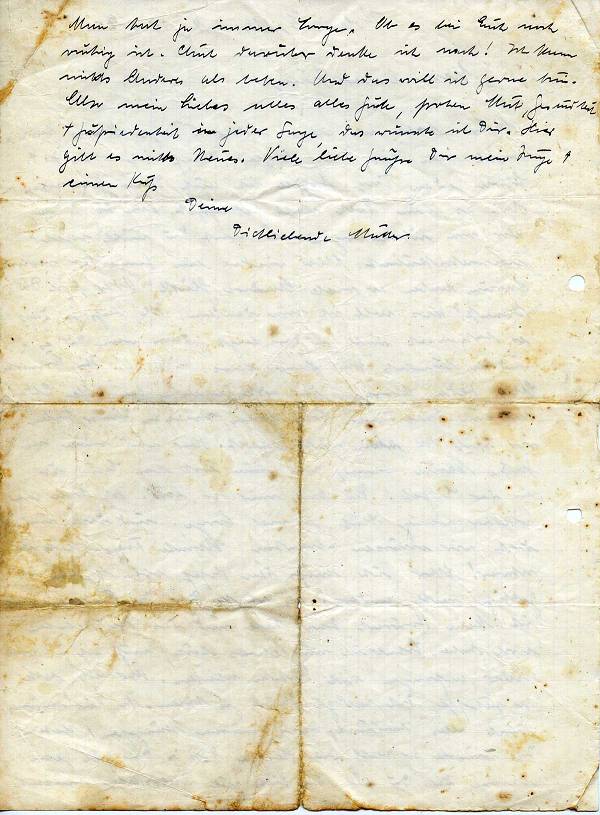 Man hat ja immer Sorge. Ob es bei Euch noch
ruhig ist. Auch darüber denke ich nach! Ich kann
nichts Anderes als beten. Und das will ich gerne tun.
Also mein Liebes alles alles Gute, frohen Mut, Gesundheit
+ Zufriedenheit in jeder Lage, das wünsche ich Dir. Hier
gibt es nichts Neues. Viele, liebe Grüße Dir mein Junge +
einen Kuß
Deine
Dichliebende Mutter.